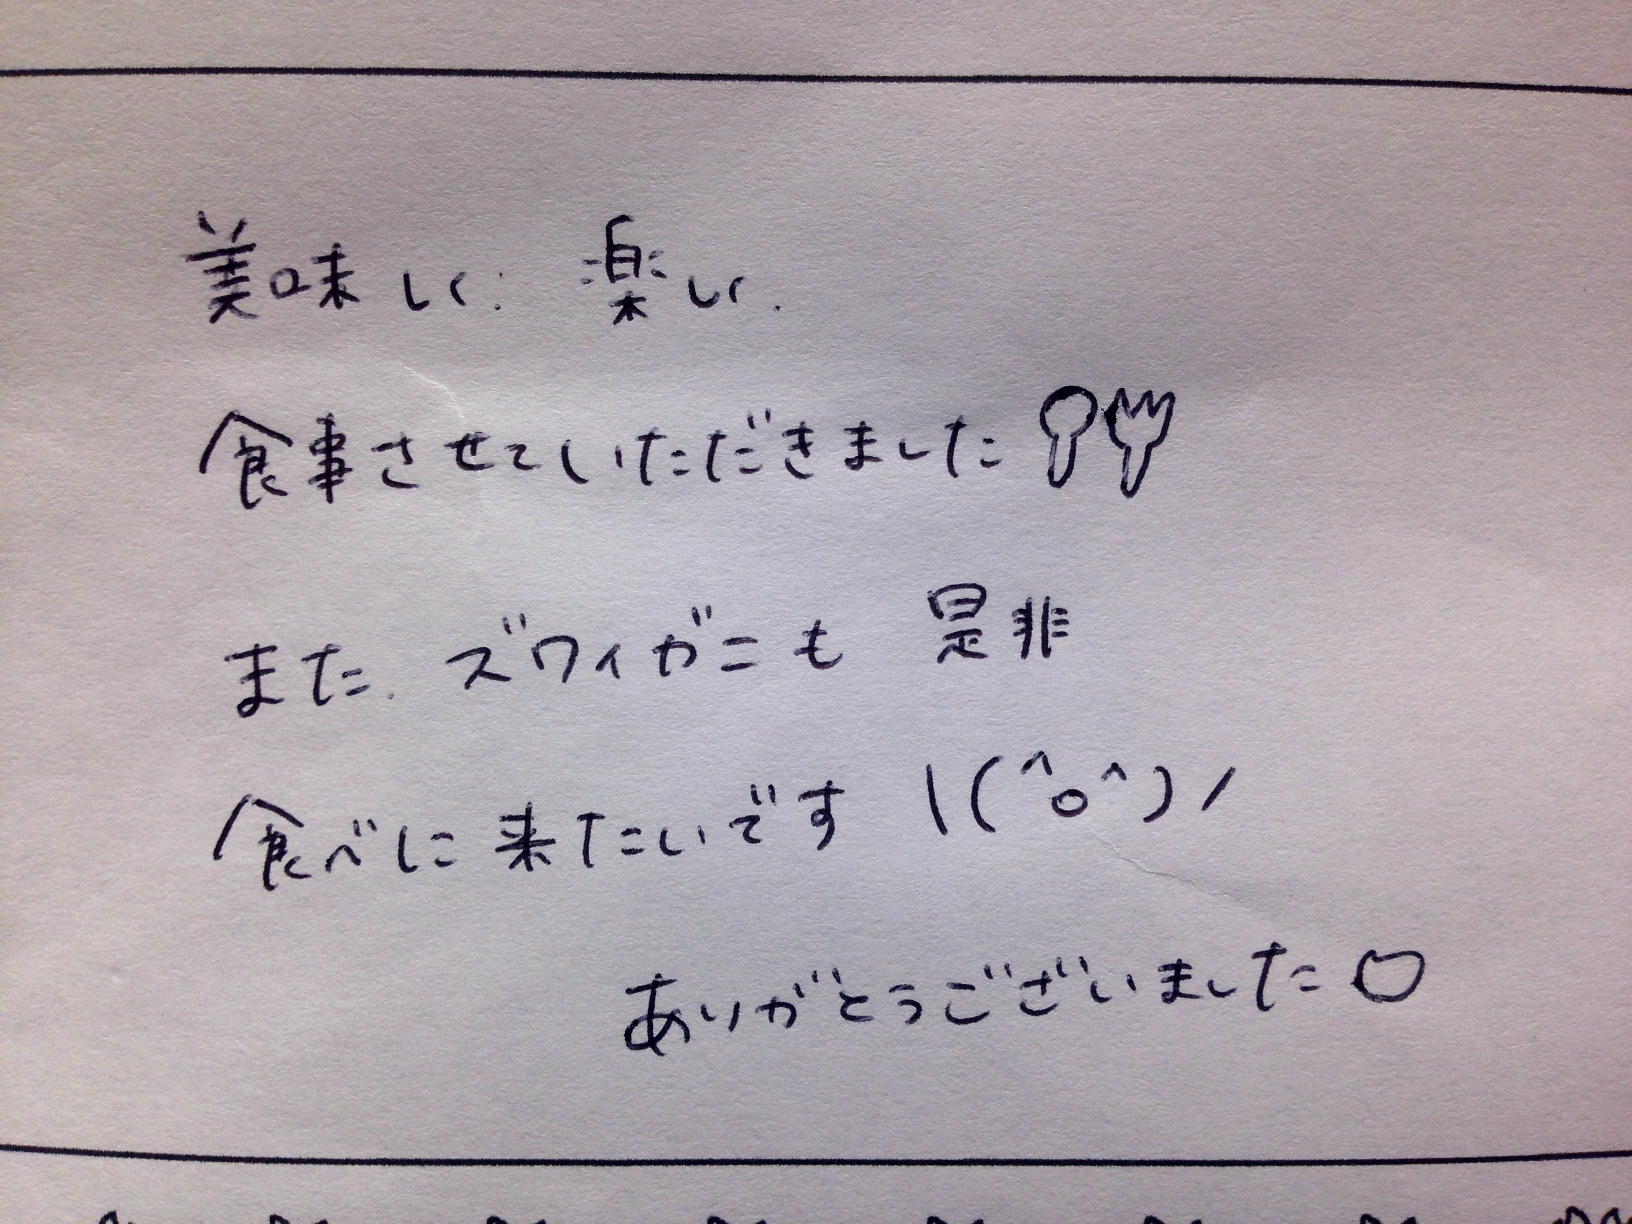 美味しく. 楽しく.
食事させていただきました
また. ズワイガニも 是非
食べに来たいです \(^o^)/
ありがとうございました♡